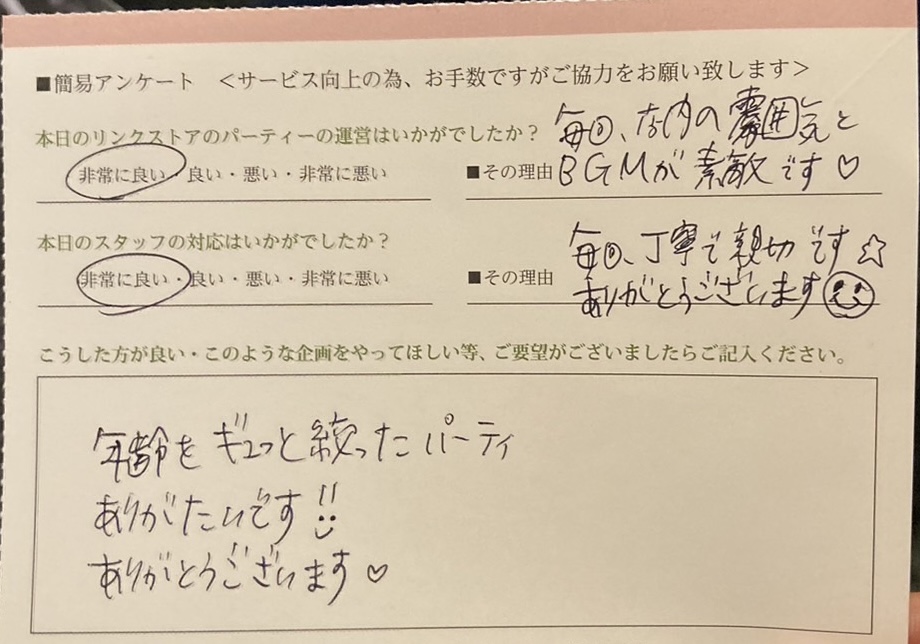 ■簡易アンケート ＜サービス向上の為、お手数ですがご協力をお願い致します＞
本日のリンクストアのパーティーの運営はいかがでしたか？
非常に良い・良い・悪い・非常に悪い
■その理由
毎回、店内の雰囲気と
BGMが素敵です♡
本日のスタッフの対応はいかがでしたか？
非常に良い・良い・悪い・非常に悪い
■その理由
毎回、丁寧で親切です☆
ありがとうございます
こうした方が良い・このような企画をやってほしい等、ご要望がございましたらご記入ください。
年齢をギュっと絞ったパーティ
ありがたいです!!
ありがとうございます♡